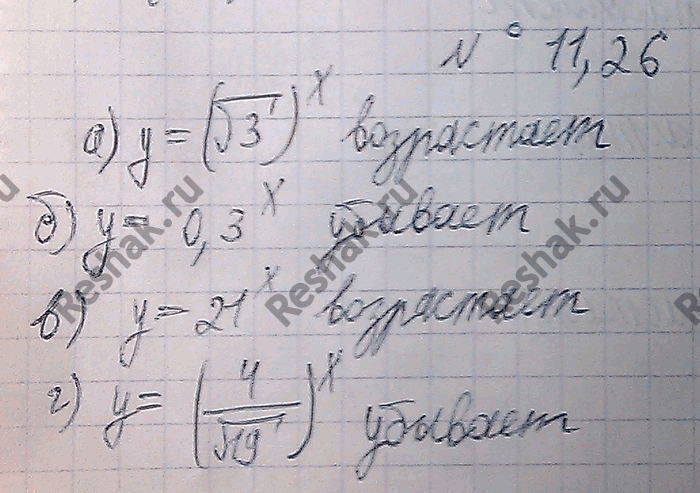 N° 11,26
а) y = (√3)^x возрастает
б) y = 0,3^x убывает
в) y = 21^x возрастает
г) y = (4/√19)^x убывает
Reshak.ru
Reshak.ru
Reshak.ru
Reshak.ru